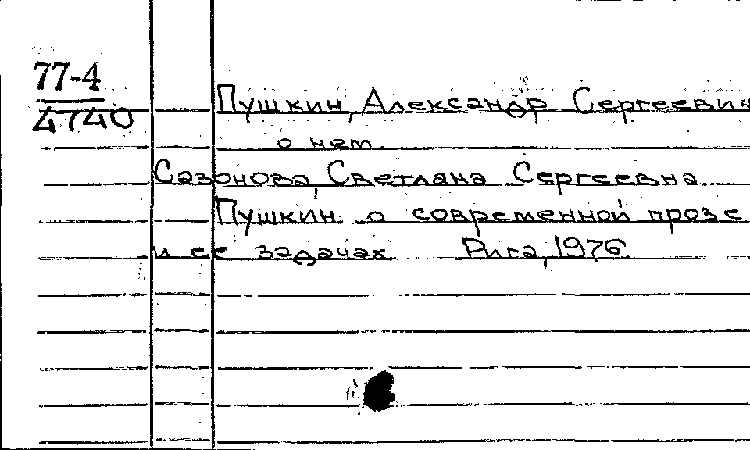 77-4
4740
Пушкин, Александр Сергеевич
о нем.
Сазонова, Светлана Сергеевна
Пушкин о современной прозе
и ее задачах Рига, 1976.